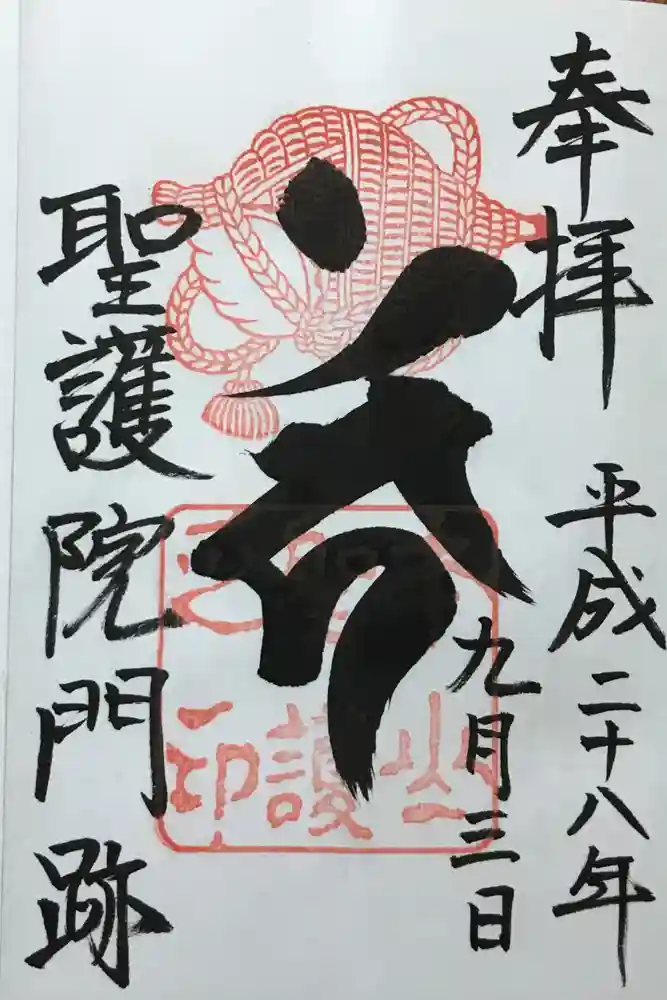 奉拝
平成二十八年
九月三日
聖護院門跡